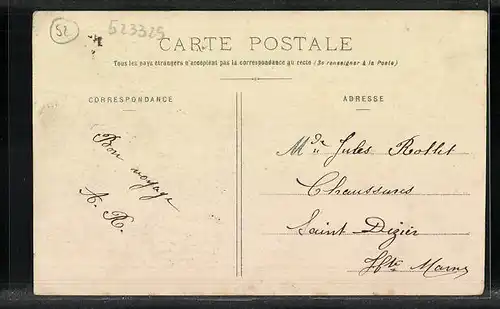 52
523325
CARTE POSTALE
Tous les pays étrangers n'acceptent pas la correspondance au recto (Se renseigner à la Poste)
CORRESPONDANCE
ADRESSE
Bon voyage
A. R.
Jules Rollet
Chaussures
Saint Dizier
Hte Marne